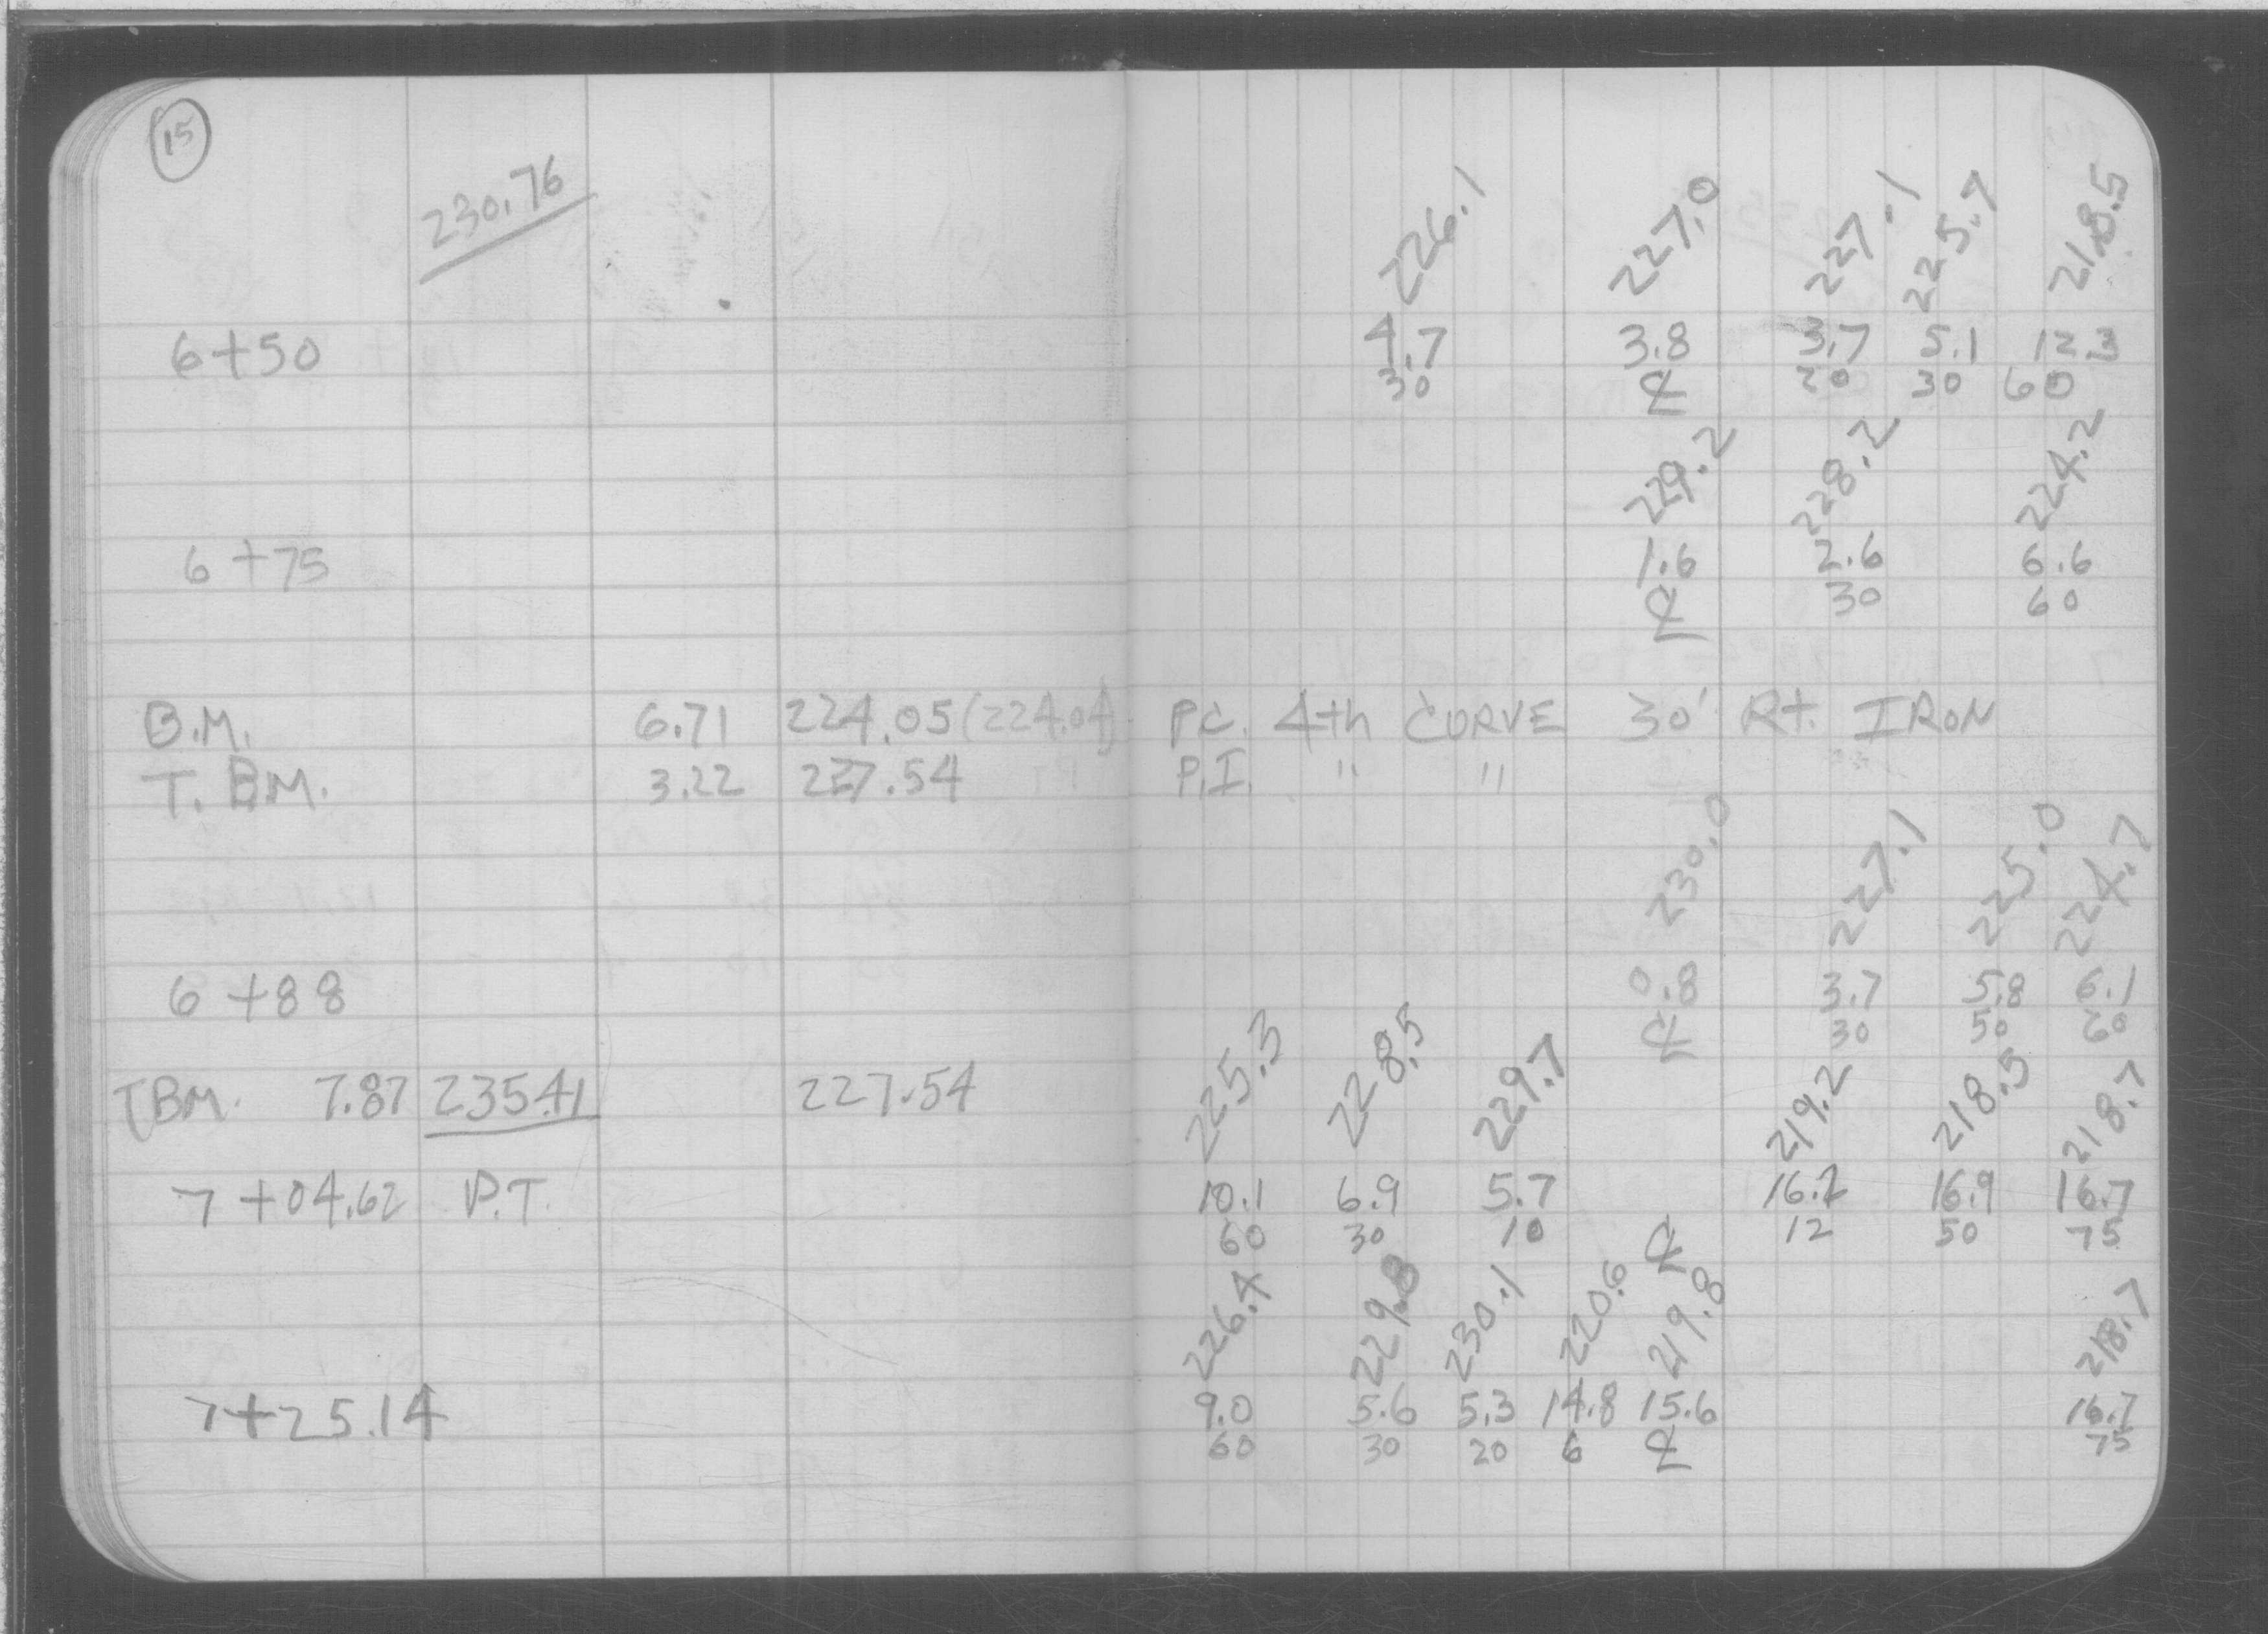 15
230.76
226.1 227.0 227.1 225.7 218.5
6+50 4.7 3.8 3.7 5.1 12.3
30 ℄ 20 30 60
229.2 228.2 224.2
6+75 1.6 2.6 6.6
℄ 30 60
B.M. 6.71 224.05 (224.04) P.C. 4th CURVE 30' Rt. IRON
T.B.M. 3.22 227.54 P.I. " "
230.0 227.1 225.0 224.7
6+88 0.8 3.7 5.8 6.1
℄ 30 50 60
225.3 228.5 229.7 219.2 218.5 218.7
TBM. 7.87 235.41 227.54
7+04.62 P.T. 10.1 6.9 5.7 16.2 16.9 16.7
60 30 10 ℄ 12 50 75
226.4 229.8 230.1 220.6 219.8 218.7
7+25.14 9.0 5.6 5.3 14.8 15.6 16.7
60 30 20 6 ℄ 75